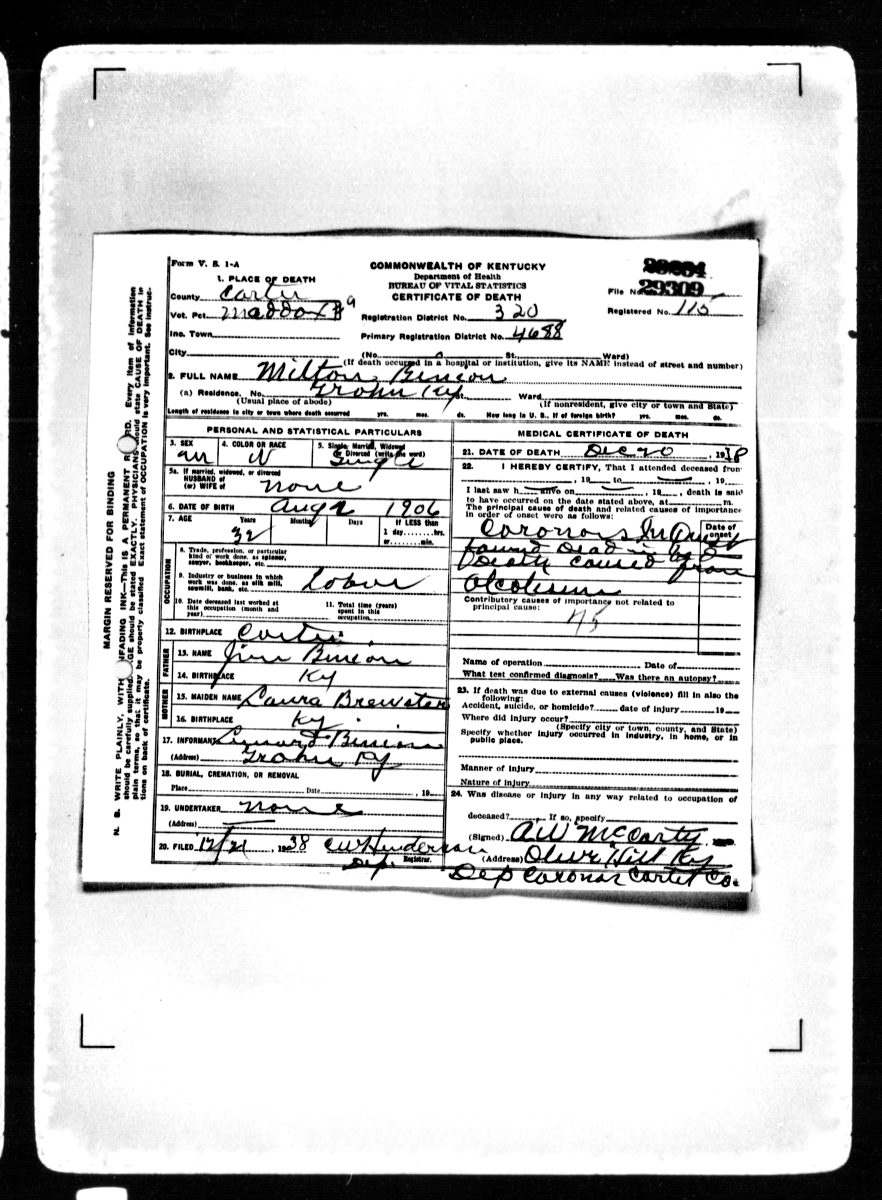 Form V. S. 1-A
COMMONWEALTH OF KENTUCKY
Department of Health
BUREAU OF VITAL STATISTICS
CERTIFICATE OF DEATH
File No. 29309
Registered No. 115
1. PLACE OF DEATH
County Carter
Vot. Pct. Maddox # 9
Registration District No. 320
Inc. Town
Primary Registration District No. 4688
City (No. St. Ward)
(If death occurred in a hospital or institution, give its NAME instead of street and number)
2. FULL NAME Milton Binion
(a) Residence. No. Grahn Ky. Ward
(Usual place of abode) (If nonresident, give city or town and State)
Length of residence in city or town where death occurred yrs. mos. ds. How long in U. S., if of foreign birth? yrs. mos. ds.
PERSONAL AND STATISTICAL PARTICULARS
3. SEX M
4. COLOR OR RACE W
5. Single, Married, Widowed or Divorced (write the word) Single
5a. If married, widowed, or divorced
HUSBAND of
(or) WIFE of none
6. DATE OF BIRTH Aug 2 1906
7. AGE Years Months Days If LESS than
32 1 day hrs.
or min.
OCCUPATION
8. Trade, profession, or particular
kind of work done, as spinner,
sawyer, bookkeeper, etc.
9. Industry or business in which
work was done, as silk mill,
sawmill, bank, etc. Labor
10. Date deceased last worked at
this occupation (month and
year)
11. Total time (years)
spent in this
occupation
12. BIRTHPLACE Carter
FATHER
13. NAME Jim Binion
14. BIRTHPLACE Ky
MOTHER
15. MAIDEN NAME Laura Brewster
16. BIRTHPLACE Ky.
17. INFORMANT Binion
(Address) Grahn Ky
18. BURIAL, CREMATION, OR REMOVAL
Place Date , 19
19. UNDERTAKER none
(Address)
20. FILED 12/21, 1938 CW Henderson
Dep. Registrar.
MEDICAL CERTIFICATE OF DEATH
21. DATE OF DEATH Dec 20, 1938
22. I HEREBY CERTIFY, That I attended deceased from
, 19 to , 19
I last saw h alive on , 19 , death is said
to have occurred on the date stated above, at m.
The principal cause of death and related causes of importance
in order of onset were as follows:
Date of onset
Coronors Inquest
found Dead in bed
Death caused from
Alcolism
Contributory causes of importance not related to
principal cause:
Name of operation Date of
What test confirmed diagnosis? Was there an autopsy?
23. If death was due to external causes (violence) fill in also the
following:
Accident, suicide, or homicide? date of injury 19
Where did injury occur?
(Specify city or town, county, and State)
Specify whether injury occurred in industry, in home, or in
public place.
Manner of injury
Nature of injury
24. Was disease or injury in any way related to occupation of
deceased? If so, specify
(Signed) AW McCarty
(Address) Olive Hill Ky
Dep Coronor Carter Co.
MARGIN RESERVED FOR BINDING